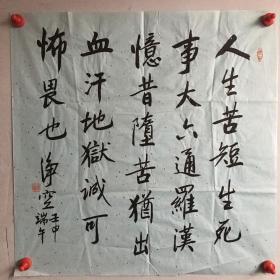 人生苦短生死
事大六通羅漢
憶昔墮苦猶出
血汗地獄誠可
怖畏也 淨空
壬申
端午